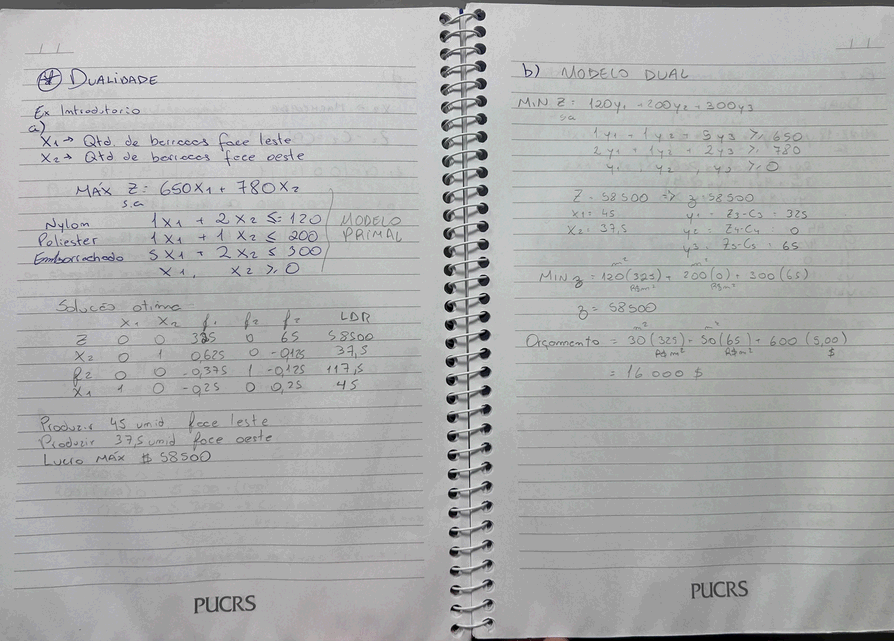 / /
* DUALIDADE
Ex Introdutorio
a)
X1 → Qtd. de barracas face leste
X2 → Qtd de barracas face oeste
MÁX Z = 650X1 + 780X2
s.a
Nylon 1X1 + 2X2 ≤ 120
Poliester 1X1 + 1X2 ≤ 200
Emborrachado 5X1 + 2X2 ≤ 300
X1, X2 ≥ 0
MODELO
PRIMAL
Solução otima
X1 X2 f1 f2 f2 LDR
Z 0 0 325 0 65 58500
X2 0 1 0,625 0 -0,125 37,5
f2 0 0 -0,375 1 -0,125 117,5
X1 1 0 -0,25 0 0,25 45
Produzir 45 unid face leste
Produzir 37,5 unid face oeste
Lucro MÁX $ 58500
PUCRS
/ /
b) MODELO DUAL
MIN Z = 120y1 + 200y2 + 300y3
sa
1y1 + 1y2 + 5y3 ≥ 650
2y1 + 1y2 + 2y3 ≥ 780
y1, y2, y3 ≥ 0
Z = 58500 => z = 58500
X1 = 45 y1 = Z3-C3 = 325
X2 = 37,5 y2 = Z4-C4 = 0
y3 = Z5-C5 = 65
m² m²
MIN z = 120(325) + 200(0) + 300(65)
R$m² R$m²
z = 58500
m² m²
Orçamento = 30(325) + 50(65) + 600(5,00)
R$m² R$m² $
= 16000 $
PUCRS